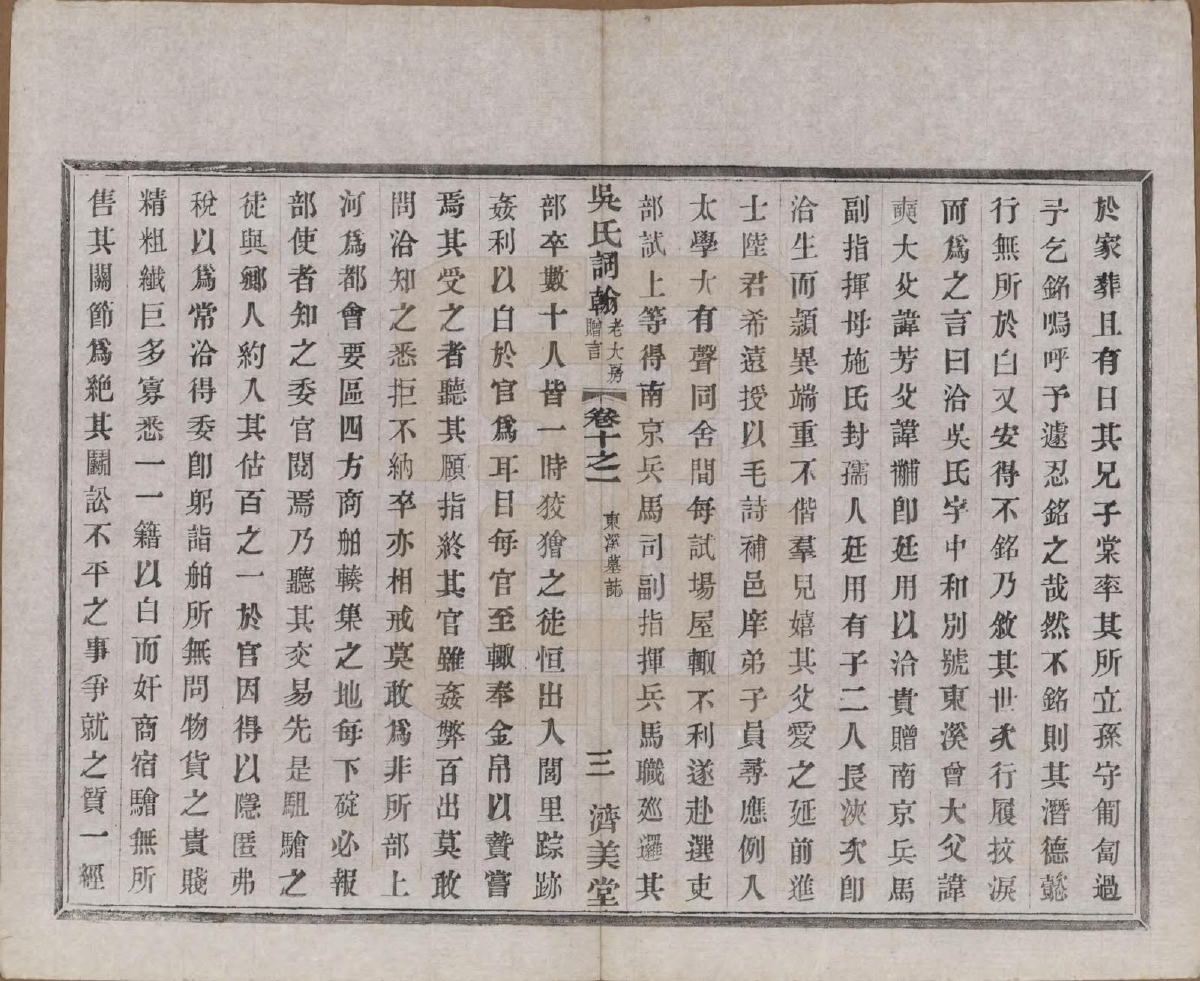 於家葬且有日其兄子棠率其所立孫守匍匐過
予乞銘嗚呼予遽忍銘之哉然不銘則其潛德懿
行無所於白又安得不銘乃敘其世次行履抆淚
而爲之言曰洽吳氏字中和別號東溪曾大父諱
奭大父諱芳父諱黼卽廷用以洽貴贈南京兵馬
副指揮母施氏封孺人廷用有子二人長浹次卽
洽生而頴異端重不偕羣兒嬉其父愛之延前進
士陸君希遠授以毛詩補邑庠弟子員尋應例入
太學大有聲同舍間每試場屋輙不利遂赴選吏
部試上等得南京兵馬司副指揮兵馬職廵邏其
吳氏詞翰 老大房贈言 卷十之一 東溪墓誌 三 濟美堂
部卒數十人皆一時狡獪之徒恒出入閭里踪跡
姦利以白於官爲耳目每官至輙奉金帛以贄嘗
焉其受之者聽其願指終其官雖姦弊百出莫敢
問洽知之悉拒不納卒亦相戒莫敢爲非所部上
河爲都會要區四方商舶輳集之地每下碇必報
部使者知之委官閱焉乃聽其交易先是駔驓之
徒與鄉人約入其估百之一於官因得以隱匿弗
稅以爲常洽得委卽躬詣舶所無問物貨之貴賤
精粗纖巨多寡悉一一籍以白而奸商宿驓無所
售其關節爲絶其鬭訟不平之事爭就之質一經